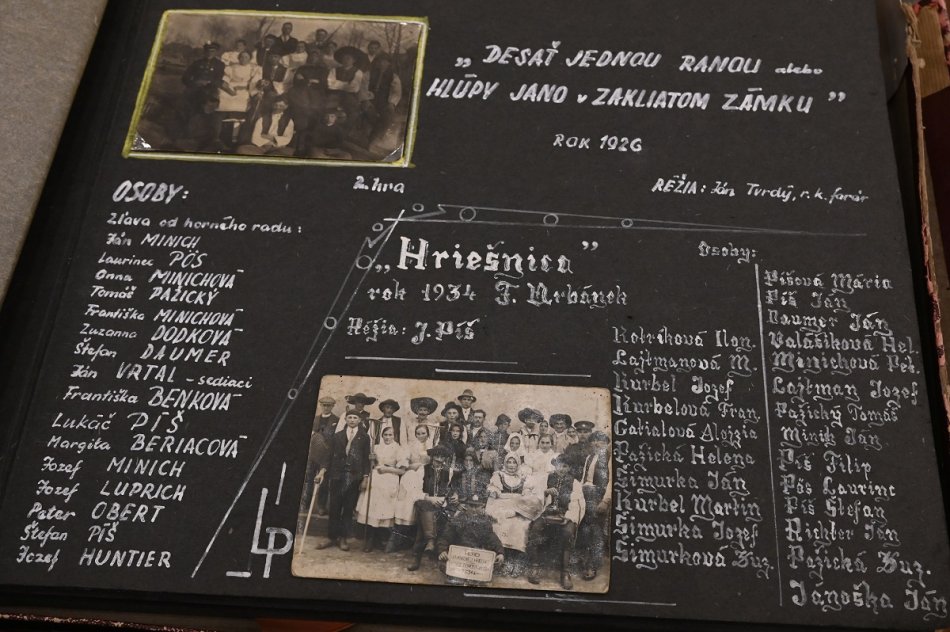 „DESAŤ JEDNOU RANOU alebo
HLÚPY JANO v ZAKLIATOM ZÁMKU”
ROK 1926
2. hra
RÉŽIA: Ján Tvrdý, r.k. farár
OSOBY:
Zľava od horného radu:
Ján MINICH
Laurinec PÖS
Anna MINICHOVÁ
Tomáš PAŽICKÝ
Františka MINICHOVÁ
Zuzanna DODKOVÁ
Štefan DAUMER
Ján VRTAL - sediaci
Františka BENKOVÁ
Lukáč PÍŠ
Margita BERIACOVÁ
Jozef MINICH
Jozef LUPRICH
Peter OBERT
Štefan PÍŠ
Jozef HUNTIER
„Hriešnica”
rok 1934 F. Urbánek
Réžia: J. Píš
LP
Osoby:
Kotríková Ilon.
Lajtmanová M.
Kurbel Jozef
Kurbelová Fran.
Gatialová Alojzia
Pažická Helena
Šimurka Ján
Kurbel Martin
Šimurka Jozef
Šimurková Zuz.
Píšová Mária
Píš Ján
Daumer Ján
Valášiková Hel.
Minichová Hel.
Lajtman Jozef
Pažický Tomáš
Minik Ján
Píš Filip
Pös Laurinc
Píš Štefan
Richter Ján
Pažická Zuz.
Janoška Ján